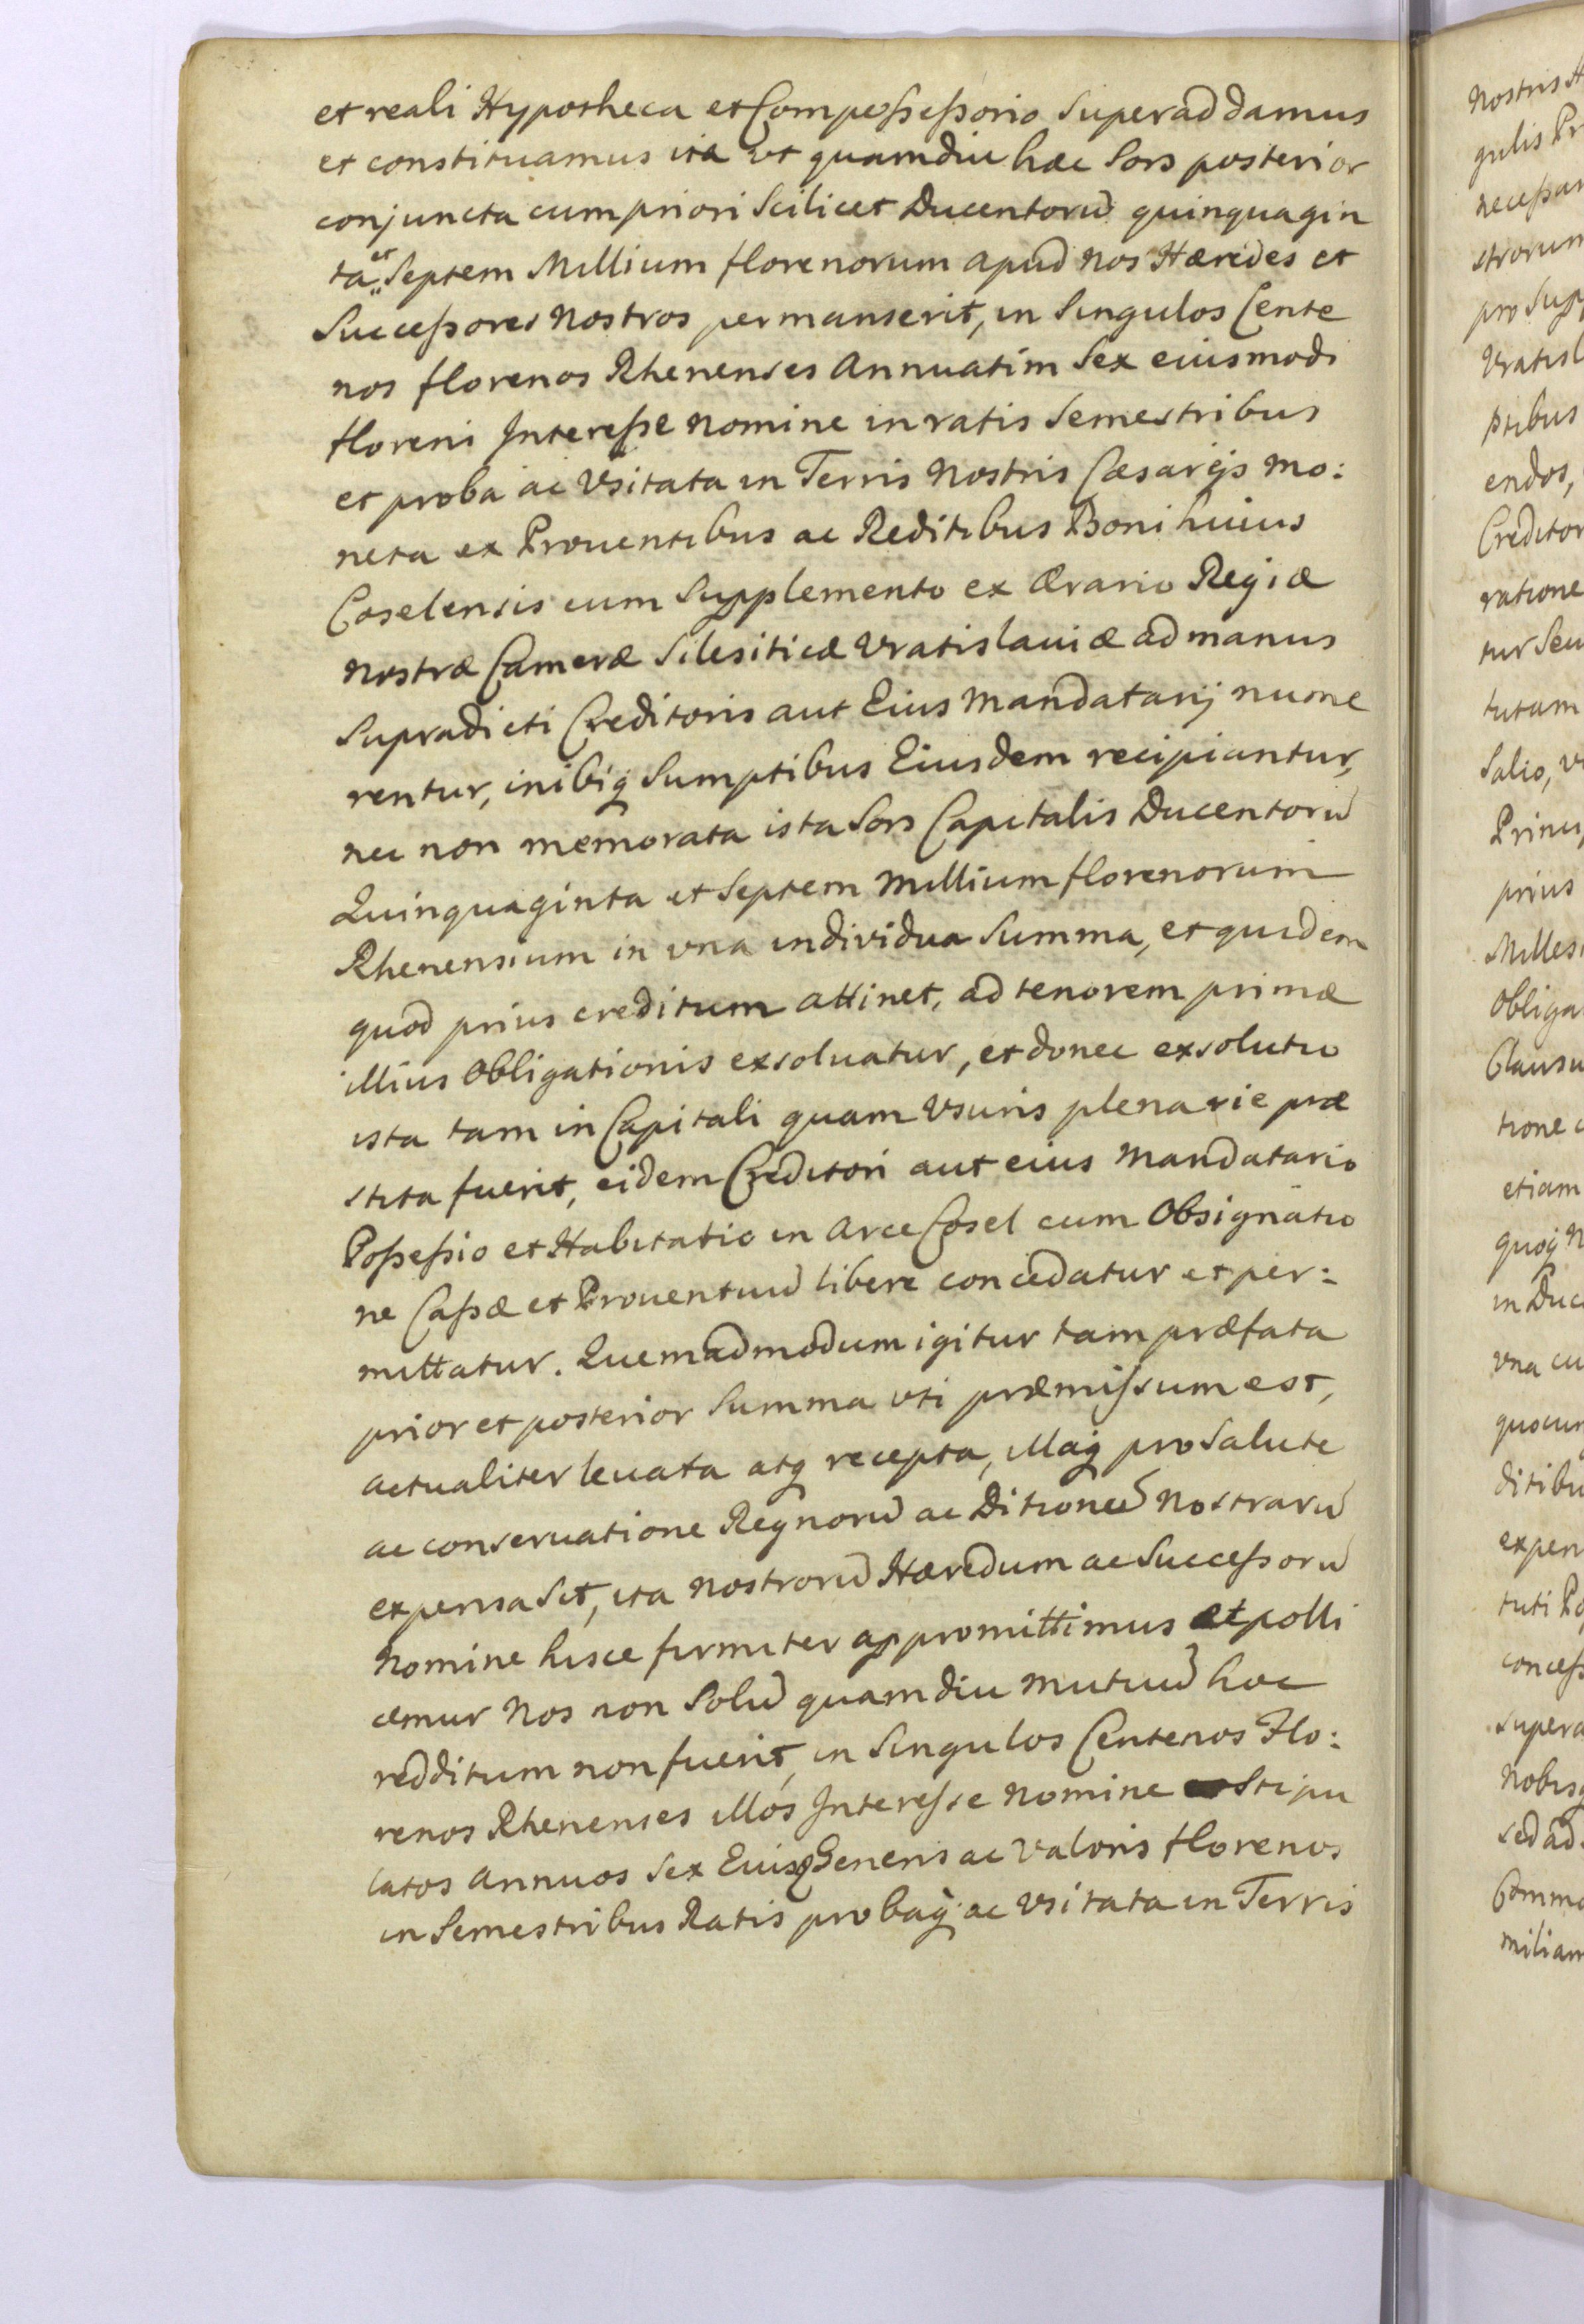 et reali Hypotheca et Compossessorio superaddamus
et constituamus ita vt quamdiu hæc Sors posterior
conjuncta cum priori scilicet Ducentorũ quinquagin
ta et Septem Millium florenorum apud nos Hæredes et
Successores Nostros permanserit, in singulos Cente
nos florenos Rhenenses Annuatim Sex eiusmodi
floreni Interesse nomine in ratis semestribus
et proba ac Vsitata in Terris Nostris Cæsareis mo:
neta ex Prouentibus ac Reditibus Boni huius
Coselensis cum Supplemento ex Ærario Regiæ
Nostræ Cameræ Silesiticæ Vratislauiæ ad manus
Supradicti Creditoris aut Eius Mandatarij nume
rentur, inibiq sumptibus Eiusdem recipiantur,
nec non memorata ista Sors Capitalis Ducentorũ
Quinquaginta et Septem Millium florenorum
Rhenensium in vna individua Summa, et quidem
quod prius creditum attinet, ad tenorem primæ
illius Obligationis exsoluatur, et donec exsolutio
ista tam in Capitali quam Vsuris plenarie præ
stita fuerit, eidem Creditori aut eius Mandatario
Possessio et Habitatio in Arce Cosel cum Obsignatio
ne Cassæ et Prouentuũ libere concedatur et per:
mittatur. Quemadmodum igitur tam præfata
prior et posterior Summa vti præmissum est,
actualiter leuata atq recepta, illaq pro Salute
ac conseruatione Regnorũ ac Ditionũ Nostrarũ
expensa sit, ita nostrorũ Hæredum ac Successorũ
Nomine hisce firmiter appromittimus et polli
cemur Nos non solũ quamdiu mutuũ hoc
redditum non fuerit, in singulos Centenos Flo:
renos Rhenenses illos Interesse nomine stipu
latos Annuos Sex Euisq Generis ac Valoris florenos
in Semestribus Ratis probaq ac Vsitata in Terris
Nostris
gulis
necessar
strorum
pro
Vratisl
ptibus
endos,
Creditor
ratione
tur seu
tutam
Salio,
prius
Obliga
tione
etiam
quoq
in Duc
vna cu
quocun
ditibu
expen
tuti
concess
supera
Nobisq
sed ad
miliam